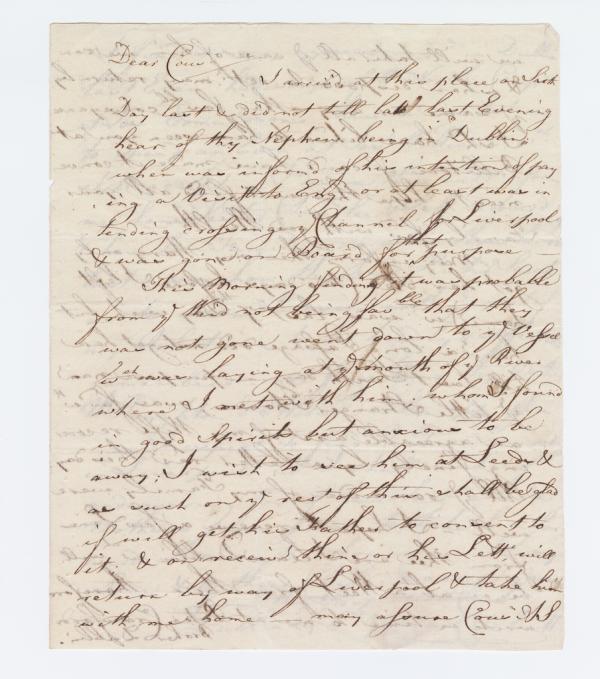 Dear Cous
I arrid at this place on Sixth
Day last & did not till late last Evening
hear of thy Nephew being in Dublin,
when was inform'd of his intention of pay
ing a Visit to Engd or at least was in
tending crossing ye Channel for Liverpool
& was gone on Board for that purpose —
This Morning finding it was probable
from ye Wind not being favble that they
was not gone went down to ye Vessel
wch was laying at ye mouth of ye River
where I met with him; whom I found
in good Spirits but anxious to be
away; I wish to see him at Leeds &
as such on ye rest of this shall be glad
if will get his Father to consent to
it. & on receivg thine or his Lettr will
return by way of Liverpool & take him
with me home — may assure Cous